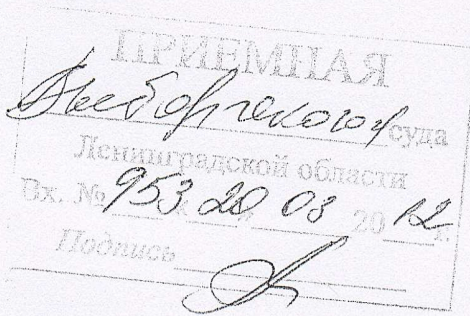 ПРИЕМНАЯ
Выборгского г суда
Ленинградской области
Вх. № 953 20 03 20 12 г.
Подпись